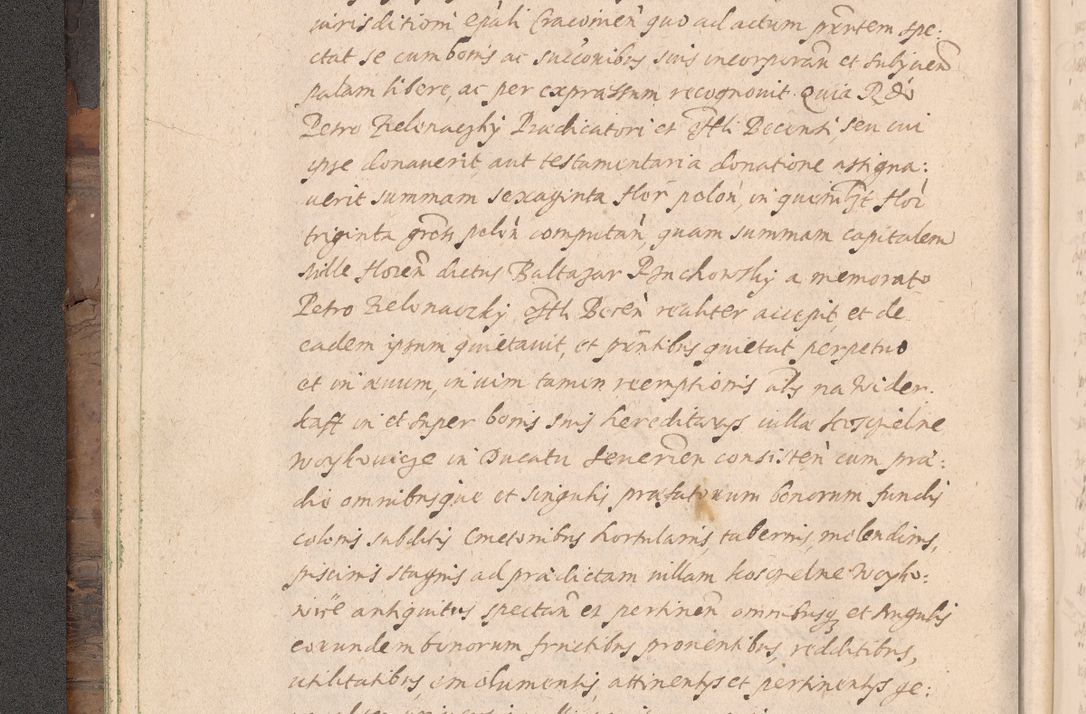 iurisditioni epāli Cracovien̄ quo ad actum pn̄tem spe:
ctat se cum bonis ac succonibus suis incorporan̄ et subijcien̄
palam libere, ac per expressum recognovit. Quia Rdo
Petro Zielonaczky Prædicatori et Decensi, seu cui
ipse donaverit, aut testamentaria donatione assigna:
verit summam sexaginta flor polon̄, in quemlīt flor
triginta gros polǹ computan̄, quam summam capitalem
mille floren̄ dictus Baltazar a memorato
Petro Zielonaczky Decen̄ realiter accepit, et de
eadem ipsum quietavit, et pn̄tibus quietat perpetuo
et in ævum, in vim tamen reemptionis als na wider:
kaff in et super bonis suis hereditarys villa Koscielne
Woykowicze in Ducatu Severien̄ consisten̄ cum præ:
dio omnibusque et singulis præfatorum bonorum fundis
colonis subditis Cmetonibus hortulanis, tabernis, molendinis,
piscinis stagnis ad prædictam villam koscielne Woyko:
antiquitus spectan̄ et pertinen̄ omnibusq et singulis
eorundem bonorum fructibus proventibus, redditibus,
utilitatibus emolumentis, attinentys et pertinentys ge: